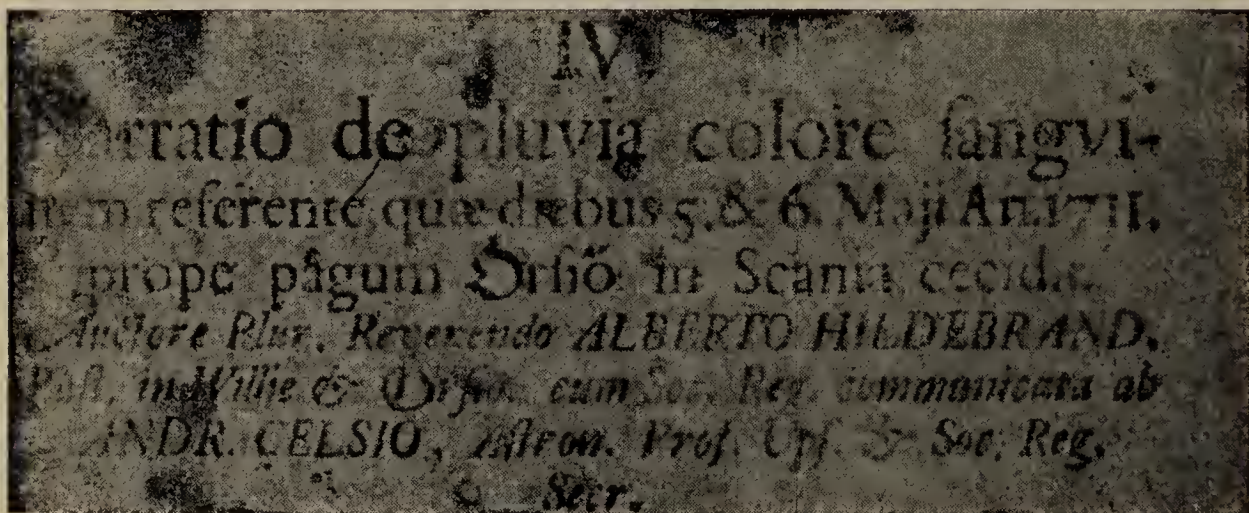 IV.
Narratio de pluvia colore ſangvi-
nem referente, quæ diebus 5. & 6. Maji An. 1711.
prope pâgum Orſiö in Scania cecidit.
Auctore Plur. Reverendo ALBERTO HILDEBRAND,
Paſt. in Willie & Orſiö, cum Soc. Reg. communicata ab
ANDR. CELSIO, Aſtron. Prof. Upſ. & Soc. Reg.
Secr.